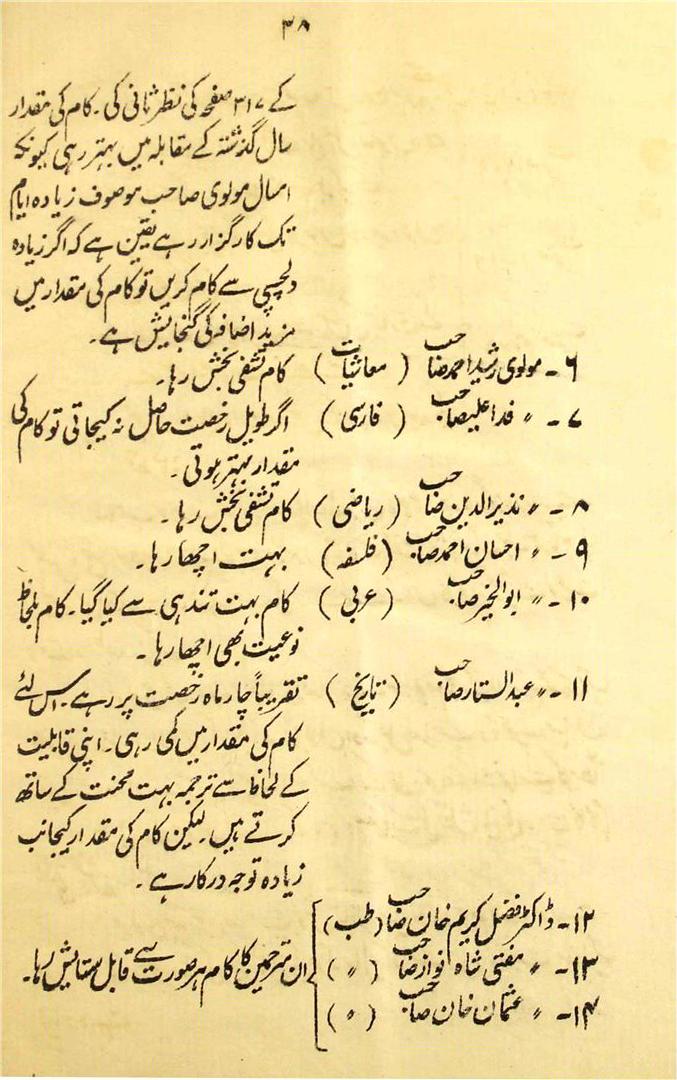 ۳۸
کے ۳۱۷ صفحہ کی نظر ثانی کی۔ کام کی مقدار
سال گذشتہ کے مقابلہ میں بہتر رہی کیونکہ
امسال مولوی صاحب موصوف زیادہ ایام
تک کارگزار رہے یقین ہے کہ اگر زیادہ
دلچسپی سے کام کریں تو کام کی مقدار میں
مزید اضافہ کی گنجایش ہے۔
۶۔ مولوی رشید احمد صاحب (معاشیات) کام تشفی بخش رہا۔
۷۔ 〃 فدا علیصاحب (فارسی) اگر طویل رخصت حاصل نہ کیجاتی تو کام کی
مقدار بہتر ہوتی۔
۸۔ 〃 نذیر الدین صاحب (ریاضی) کام تشفی بخش رہا۔
۹۔ 〃 احسان احمد صاحب (فلسفہ) بہت اچھا رہا۔
۱۰۔ 〃 ابوالخیر صاحب (عربی) کام بہت تندہی سے کیا گیا۔ کام بلحاظ
نوعیت بھی اچھا رہا۔
۱۱۔ 〃 عبدالستار صاحب (تاریخ) تقریباً چار ماہ رخصت پر رہے۔ اس لئے
کام کی مقدار میں کمی رہی۔ اپنی قابلیت
کے لحاظ سے ترجمہ بہت محنت کے ساتھ
کرتے ہیں۔ لیکن کام کی مقدار کیجانب
زیادہ توجہ درکار ہے۔
۱۲۔ ڈاکٹر فضل کریم خان صاحب (طب)
۱۳۔ 〃 مفتی شاہ نواز صاحب (〃) ان مترجمین کا کام ہر صورت سے قابل ستایش رہا۔
۱۴۔ 〃 عثمان خان صاحب (〃)